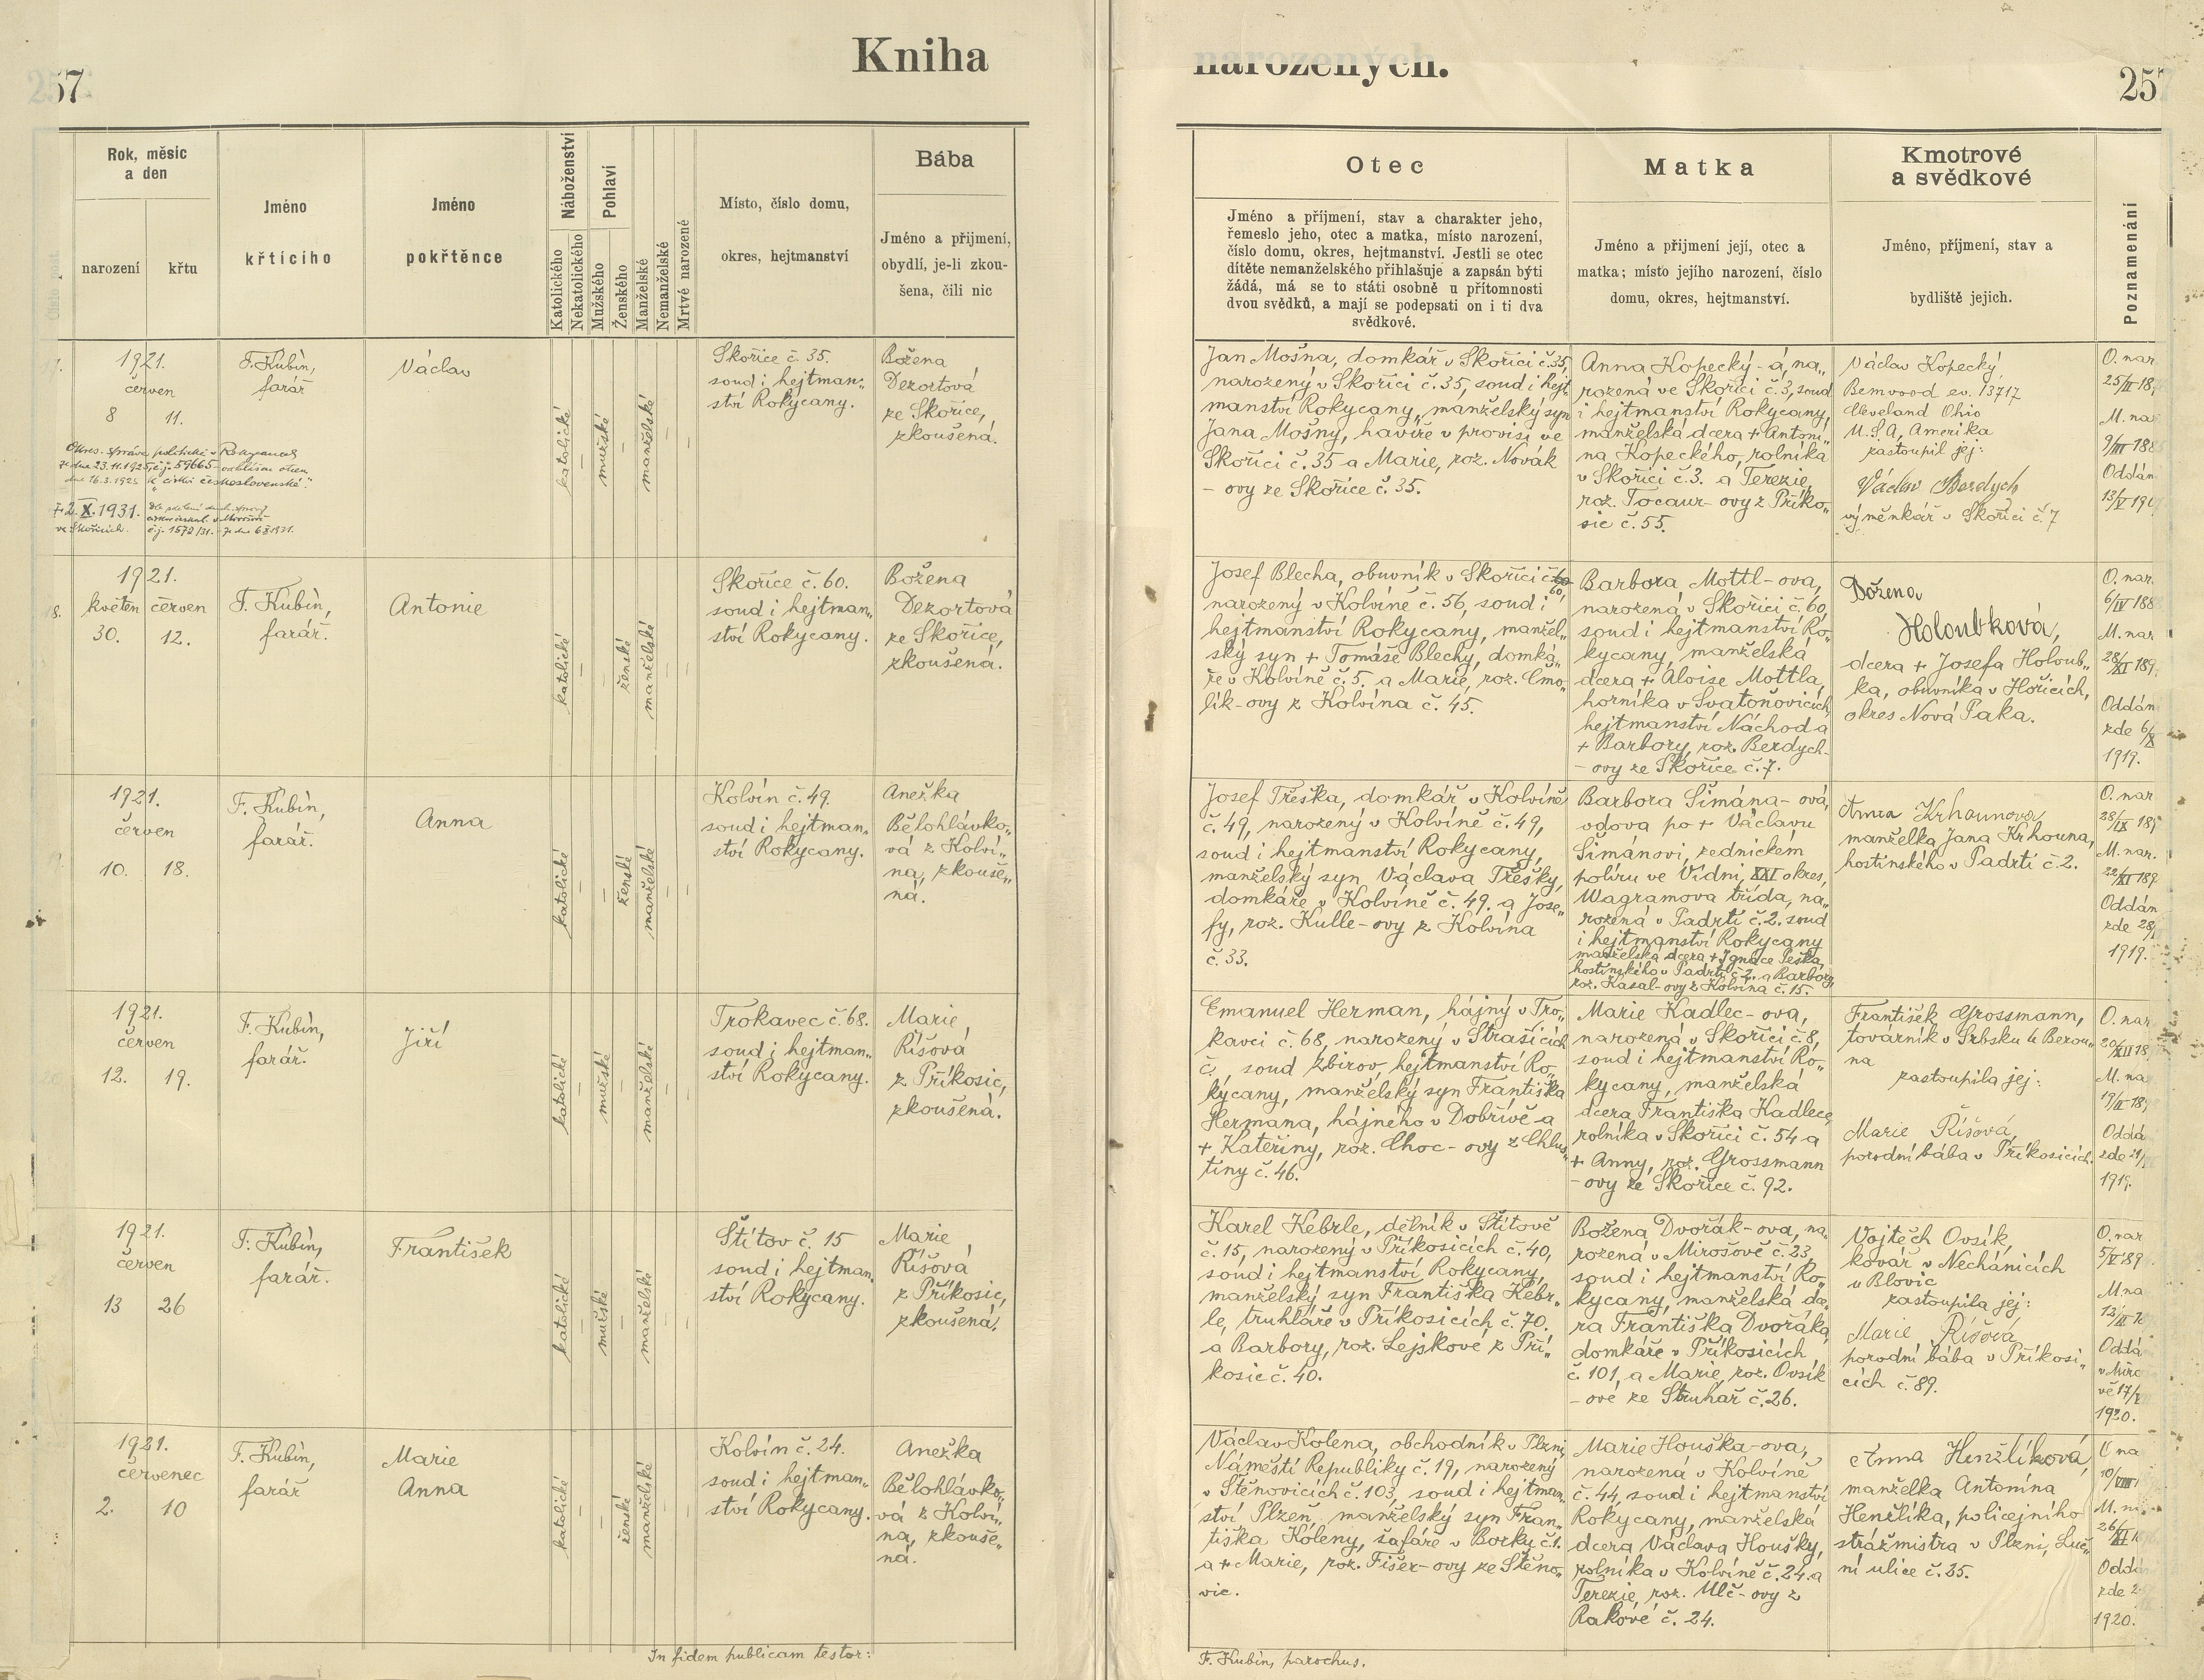 Kniha
narozených.
257
257
Rok, měsíc
a den
narození
křtu
Jméno
křtícího
Jméno
pokřtěnce
Náboženství
Katolického
Nekatolického
Pohlaví
Mužského
Ženského
Manželské
Nemanželské
Mrtvé narozené
Místo, číslo domu,
okres, hejtmanství
Bába
Jméno a přijmení,
obydlí, je-li zkou-
šena, čili nic
Otec
Jméno a příjmení, stav a charakter jeho,
řemeslo jeho, otec a matka, místo narození,
číslo domu, okres, hejtmanství. Jestli se otec
dítěte nemanželského přihlašuje a zapsán býti
žádá, má se to státi osobně u přítomnosti
dvou svědků, a mají se podepsati on i ti dva
svědkové.
Matka
Jméno a přijmení její, otec a
matka; místo jejího narození, číslo
domu, okres, hejtmanství.
Kmotrové
a svědkové
Jméno, příjmení, stav a
bydliště jejich.
Poznamenání
1921.
červen
8 11.
Okres. správa politická v Rokycanech
ze dne 23.11.1925, čj. 59665
dne 16.3.1925 k "církvi československé".
2.X.1931.
ve Skořicích.
čj. 1572/31.
F. Kubín,
farář
Václav
katolické
–
mužské
–
manželské
–
–
Skořice č. 35.
soud i hejtman„
ství Rokycany.
Božena
Dezortová
ze Skořice,
zkoušená.
Jan Mošna, domkář v Skořici č. 35,
narozený v Skořici č. 35, soud i hejt„
manství Rokycany, manželský syn
Jana Mošny, havíře v provisi ve
Skořici č. 35 a Marie, roz. Novák
- ovy ze Skořice č. 35.
Anna Kopecký - á, na„
rozená ve Skořici č. 3, soud
i hejtmanství Rokycany,
manželská dcera + Antoni„
na Kopeckého, rolníka
v Skořici č. 3. a Terezie,
roz. Tocaur- ovy z Příko„
sic č. 55.
Václav Kopecký,
Bemwood ev. 13717
Cleveland Ohio
U.S.A, Amerika
zastoupil jej:
Václav Berdych
výměnkář v Skořici č. 7
O. nar
25/II 18
M. nar
9/III 188
Oddán
13/V 190
1921.
květen červen
30. 12.
F. Kubín,
farář.
Antonie
katolické
–
–
ženské
manželské
–
–
Skořice č. 60.
soud i hejtman„
ství Rokycany.
Božena
Dezortová
ze Skořice,
zkoušená.
Josef Blecha, obuvník v Skořici č. 60,
narozený v Kolvíně č. 56, soud i
hejtmanství Rokycany, manžel„
ský syn + Tomáše Blechy, domká„
ře v Kolvíně č. 5. a Marie, roz. Cmo„
lík-ovy z Kolvína č. 45.
Barbora Mottl- ova,
narozená v Skořici č. 60,
soud i hejtmanství Ro„
kycany, manželská
dcera + Aloise Mottla,
horníka v Svatoňovicích,
hejtmanství Náchod a
+ Barbory, roz. Berdych-
- ovy ze Skořice č. 7.
Božena
Holoubková,
dcera + Josefa Holoub„
ka, obuvníka v Hořicích,
okres Nová Paka.
O. nar.
6/IV 188
M. nar
28/XI 189
Oddán
zde 6/X
1919.
1921.
červen
10. 18.
F. Kubín,
farář.
Anna
katolické
–
–
ženské
manželské
–
–
Kolvín č. 49.
soud i hejtman„
ství Rokycany.
Anežka
Bělohlávko„
vá z Kolví„
na, zkouše„
ná.
Josef Třeška, domkář v Kolvíně
č. 49, narozený v Kolvíně č. 49,
soud i hejtmanství Rokycany,
manželský syn Václava Třešky,
domkáře v Kolvíně č. 49. a Jose„
fy, roz. Kulle-ovy z Kolvína
č. 33.
Barbora Šimána- ová,
vdova po + Václavu
Šimánovi, zednickém
políru ve Vídni, XXI okres,
Wagramova třída, na„
rozená v Padrti č. 2. soud
i hejtmanství Rokycany
manželská dcera + Ignáce Peška,
hostinského v Padrti č. 2. a Barbory
roz. Kasal-ovy z Kolvína č. 15.
Anna Krhounova,
manželka Jana Krhouna,
hostinského v Padrti č. 2.
O. nar
28/IX 18
M. nar.
22/XI 189
Oddán
zde 28/
1919.
1921.
červen
12. 19.
F. Kubín,
farář.
Jiří
katolické
–
mužské
–
manželské
–
–
Trokavec č. 68.
soud i hejtman„
ství Rokycany.
Marie
Říšová
z Příkosic,
zkoušená.
Emanuel Herman, hájný v Tro„
kavci č. 68, narozený v Strašicích
č. , soud Zbirov, hejtmanství Ro„
kycany, manželský syn Františka
Hermana, hájného v Dobřívě a
+ Kateřiny, roz. Choc- ovy z Chlus„
tiny č. 46.
Marie Kadlec- ova,
narozená v Skořici č. 8,
soud i hejtmanství Ro„
kycany, manželská
dcera Františka Kadlece,
rolníka v Skořici č. 54 a
+ Anny, roz. Grossmann
- ovy ze Skořice č. 92.
František Grossmann,
továrník v Srbsku u Berou„
na
zastoupila jej:
Marie Říšová,
porodní bába v Příkosicích.
O. nar
20/XII 18
M. na
19/II 189
Oddá
zde 21/
1919.
1921.
červen
13 26
F. Kubín,
farář.
František
katolické
–
mužské
–
manželské
–
–
Štítov č. 15
soud i hejtman„
ství Rokycany.
Marie
Říšová
z Příkosic,
zkoušená.
Karel Kebrle, dělník v Štítově
č. 15, narozený v Příkosicích č. 40,
soud i hejtmanství Rokycany,
manželský syn Františka Kebr„
le, truhláře v Příkosicích č. 70.
a Barbory, roz. Lejskové z Pří„
kosic č. 40.
Božena Dvořák- ova, na„
rozená v Mirošově č. 23,
soud i hejtmanství Ro„
kycany, manželská dce„
ra Františka Dvořáka,
domkáře v Příkosicích
č. 101, a Marie, roz. Ovsík
- ové ze Struhař č. 26.
Vojtěch Ovsík,
kovář v Nechánicích
u Blovic
zastoupila jej:
Marie Říšová,
porodní bába v Příkosi„
cích č. 89.
O. nar
5/V 189
M. na
Oddá
v Miro
vě 17/
1920.
1921.
červenec
2. 10
F. Kubín,
farář
Marie
Anna
katolické
–
–
ženské
manželské
–
–
Kolvín č. 24.
soud i hejtman„
ství Rokycany.
Anežka
Bělohlávko„
vá z Kolví„
na, zkouše„
ná.
Václav Kolena, obchodník v Plzni,
Náměstí Republiky č. 19, narozený
v Štěnovicích č. 103, soud i hejtman„
ství Plzeň, manželský syn Fran„
tiška Koleny, šafáře v Borku č. 1.
a + Marie, roz. Fišer-ovy ze Štěno„
vic.
Marie Houška-ova,
narozená v Kolvíně
č. 44, soud i hejtmanství
Rokycany, manželská
dcera Václava Houšky,
rolníka v Kolvíně č. 24. a
Terezie, roz. Ulč- ovy z
Rakové č. 24.
Anna Henžlíková,
manželka Antonína
Henžlíka, policejního
strážmistra v Plzni, Luč„
ní ulice č. 35.
O na
10/VIII
M. n
26/XI
Oddá
zde 2
1920.
In fidem publicam testor:
F. Kubín, parochus.